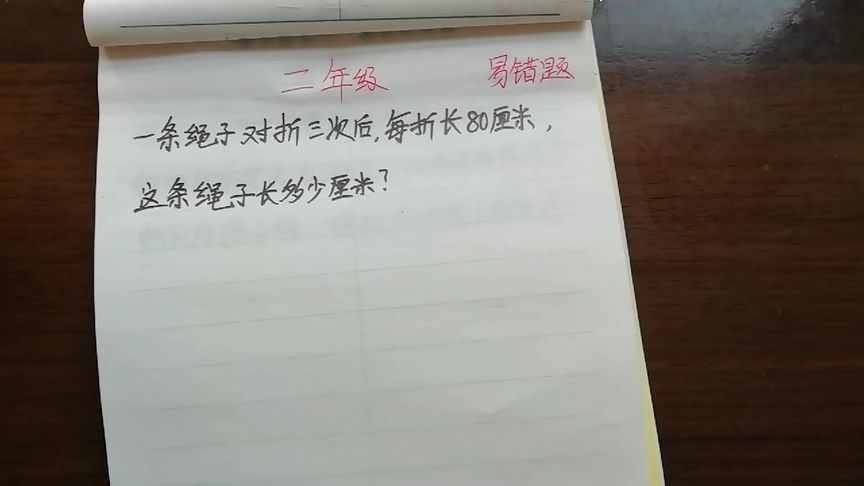 二年级 易错题
一条绳子对折三次后,每折长80厘米,
这条绳子长多少厘米?